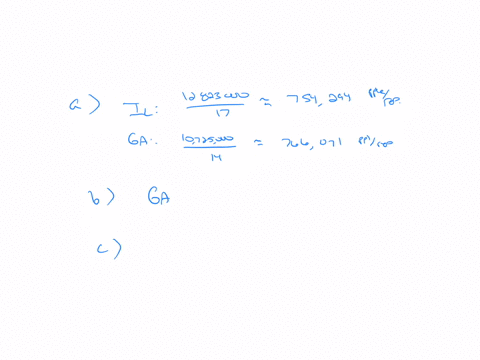 a) IL: 12,823,000 / 17 ≈ 754,294 ppl/rep.
GA: 10,725,000 / 14 ≈ 766,071 ppl/rep
b) GA
c)